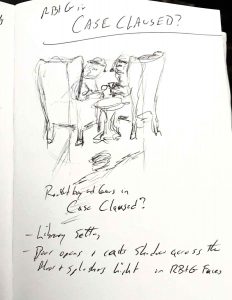 RB+G in
CASE CLAUSED?
in
Case Claused?
- Library Setting
- Door opens + casts Shadow across the
floor + splashes light in RB+G Faces